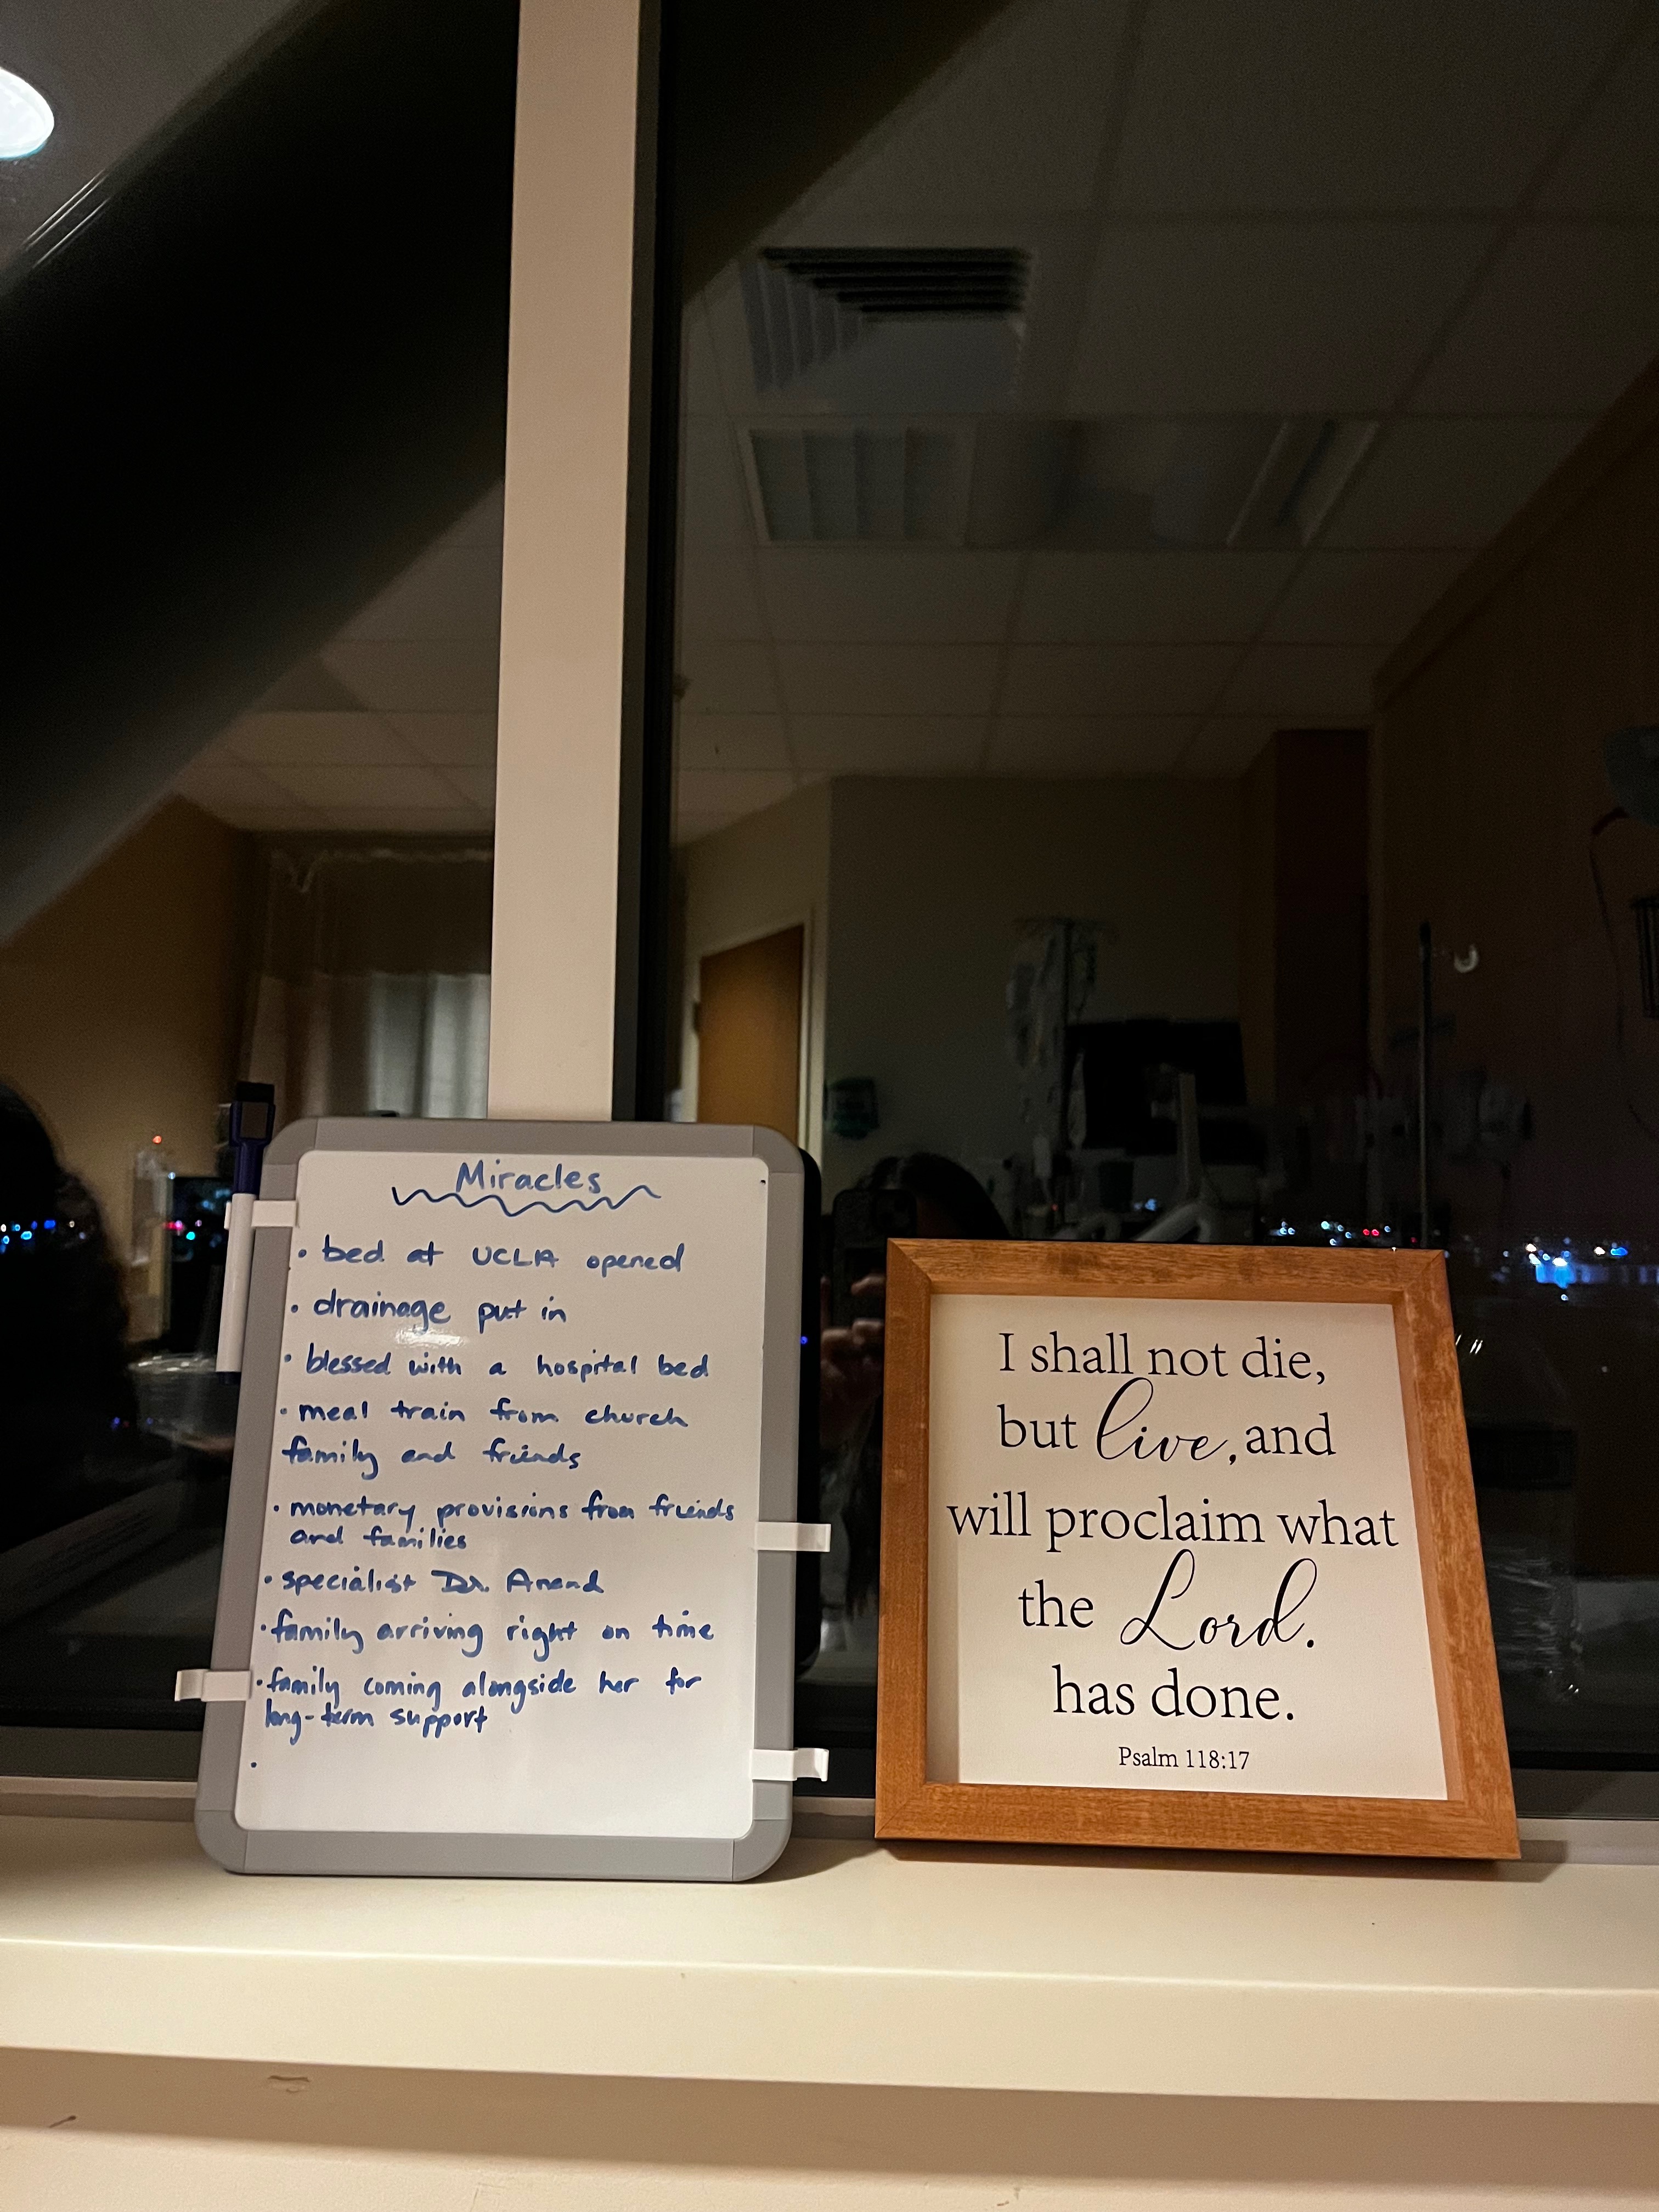 Miracles
• bed at UCLA opened
• drainage put in
• blessed with a hospital bed
• meal train from church
family and friends
• monetary provisions from friends
and families
• specialist Dr. Anand
• family arriving right on time
• family coming alongside her for
long-term support
•
I shall not die,
but live, and
will proclaim what
the Lord.
has done.
Psalm 118:17